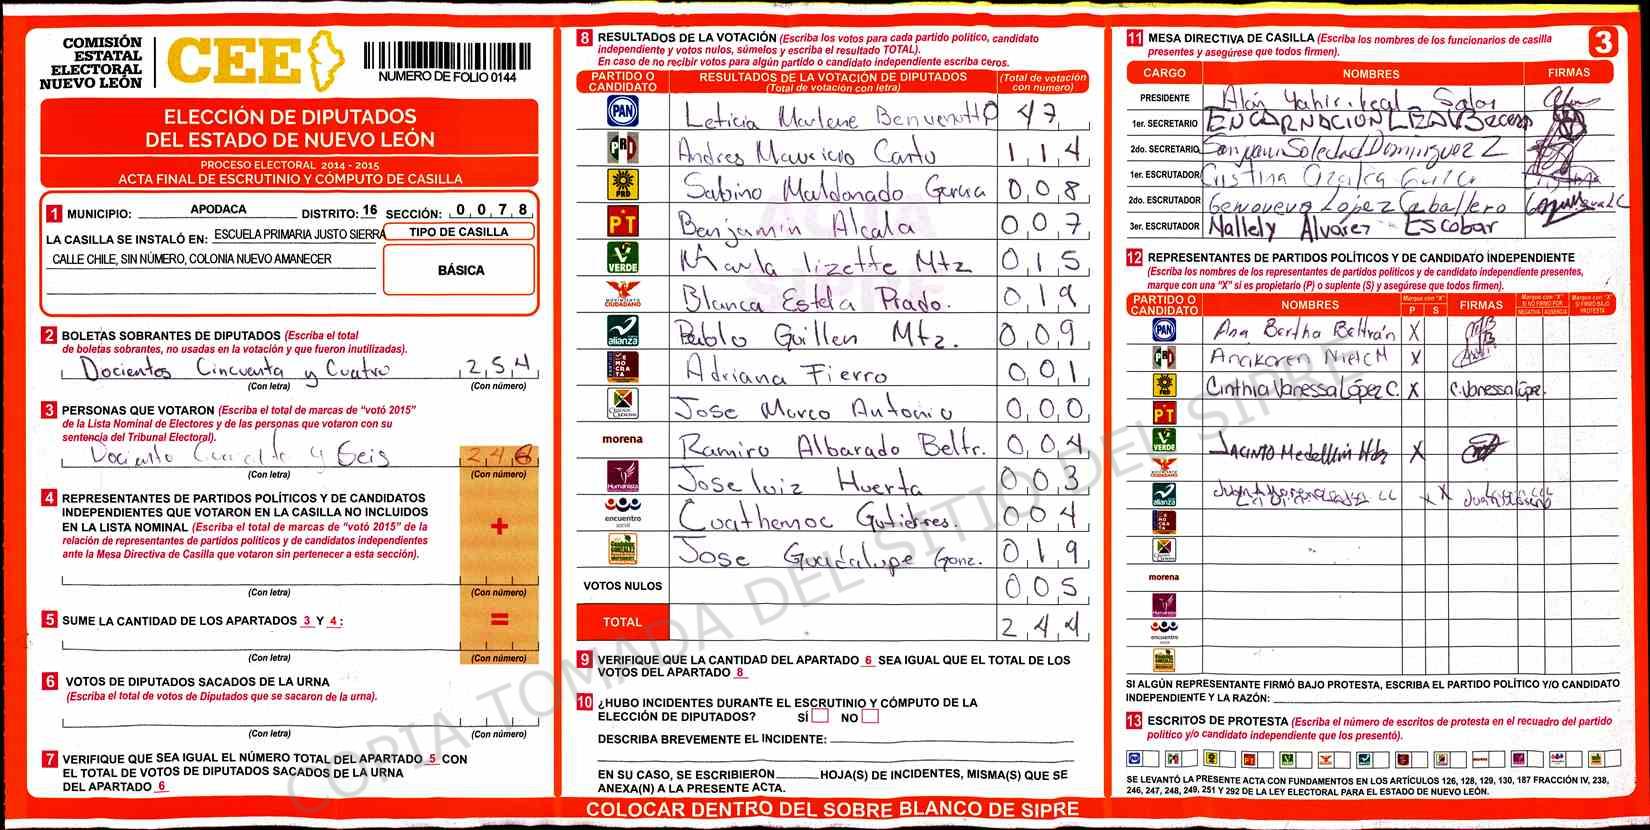 COMISIÓN
ESTATAL
ELECTORAL
NUEVO LEÓN
CEE
NUMERO DE FOLIO 0144
ELECCIÓN DE DIPUTADOS
DEL ESTADO DE NUEVO LEÓN
PROCESO ELECTORAL 2014 - 2015
ACTA FINAL DE ESCRUTINIO Y CÓMPUTO DE CASILLA
1 MUNICIPIO: APODACA DISTRITO: 16 SECCIÓN: 0 0 7 8
LA CASILLA SE INSTALÓ EN: ESCUELA PRIMARIA JUSTO SIERRA
CALLE CHILE, SIN NÚMERO, COLONIA NUEVO AMANECER
TIPO DE CASILLA
BÁSICA
2 BOLETAS SOBRANTES DE DIPUTADOS (Escriba el total
de boletas sobrantes, no usadas en la votación y que fueron inutilizadas).
Docientos Cincuenta y Cuatro 2 5 4
(Con letra) (Con número)
3 PERSONAS QUE VOTARON (Escriba el total de marcas de "votó 2015"
de la Lista Nominal de Electores y de las personas que votaron con su
sentencia del Tribunal Electoral).
y Seis 2 4 6
(Con letra) (Con número)
4 REPRESENTANTES DE PARTIDOS POLÍTICOS Y DE CANDIDATOS
INDEPENDIENTES QUE VOTARON EN LA CASILLA NO INCLUIDOS
EN LA LISTA NOMINAL (Escriba el total de marcas de "votó 2015" de la
relación de representantes de partidos políticos y de candidatos independientes
ante la Mesa Directiva de Casilla que votaron sin pertenecer a esta sección).
+
(Con letra) (Con número)
5 SUME LA CANTIDAD DE LOS APARTADOS 3 Y 4:
=
(Con letra) (Con número)
6 VOTOS DE DIPUTADOS SACADOS DE LA URNA
(Escriba el total de votos de Diputados que se sacaron de la urna).
(Con letra) (Con número)
7 VERIFIQUE QUE SEA IGUAL EL NÚMERO TOTAL DEL APARTADO 5 CON
EL TOTAL DE VOTOS DE DIPUTADOS SACADOS DE LA URNA
DEL APARTADO 6
8 RESULTADOS DE LA VOTACIÓN (Escriba los votos para cada partido político, candidato
independiente y votos nulos, súmelos y escriba el resultado TOTAL).
En caso de no recibir votos para algún partido o candidato independiente escriba ceros.
PARTIDO O CANDIDATO RESULTADOS DE LA VOTACIÓN DE DIPUTADOS (Total de votación con letra) (Total de votación con número)
PAN Leticia Marlene Benvenutto 47
PRI Andres Mauricio Cantu 1 1 4
PRD Sabino Maldonado Garcia 0 0 8
PT Benjamin Alcala 0 0 7
VERDE Karla lizette Mtz 0 1 5
MOVIMIENTO CIUDADANO Blanca Estela Prado. 0 1 9
alianza Pablo Guillen Mtz. 0 0 9
DEMOCRATA Adriana Fierro 0 0 1
Jose Marco Antonio 0 0 0
morena Ramiro Albarado Beltr. 0 0 4
Humanista Jose luiz Huerta 0 0 3
encuentro social Cuathemoc Gutierres. 0 0 4
Jose Guadalupe Gonz. 0 1 9
VOTOS NULOS 0 0 5
TOTAL 2 4 4
9 VERIFIQUE QUE LA CANTIDAD DEL APARTADO 6 SEA IGUAL QUE EL TOTAL DE LOS
VOTOS DEL APARTADO 8
10 ¿HUBO INCIDENTES DURANTE EL ESCRUTINIO Y CÓMPUTO DE LA
ELECCIÓN DE DIPUTADOS? SÍ NO
DESCRIBA BREVEMENTE EL INCIDENTE:
EN SU CASO, SE ESCRIBIERON HOJA(S) DE INCIDENTES, MISMA(S) QUE SE
ANEXA(N) A LA PRESENTE ACTA.
COLOCAR DENTRO DEL SOBRE BLANCO DE SIPRE
11 MESA DIRECTIVA DE CASILLA (Escriba los nombres de los funcionarios de casilla
presentes y asegúrese que todos firmen).
3
CARGO NOMBRES FIRMAS
PRESIDENTE Alan Yahir
1er. SECRETARIO ENCARNACION
2do. SECRETARIO Soledad Dominguez Z
1er. ESCRUTADOR Cristina
2do. ESCRUTADOR Genoveva Lopez Caballero
3er. ESCRUTADOR Nallely Alvarez Escobar
12 REPRESENTANTES DE PARTIDOS POLÍTICOS Y DE CANDIDATO INDEPENDIENTE
(Escriba los nombres de los representantes de partidos politicos y de candidato independiente presentes,
marque con una "X" si es propietario (P) o suplente (S) y asegúrese que todos firmen).
PARTIDO O CANDIDATO NOMBRES Marque con "X" P S FIRMAS Marque con "X" SI NO FIRMÓ POR NEGATIVA AUSENCIA Marque con "X" SI FIRMÓ BAJO PROTESTA
PAN Ana Bertha Beltrán X
PRI Anakaren X
PRD Cinthia Vanessa López C. X C. Vanessa López.
PT
VERDE JACINTO Medellin Hdz X
alianza X X
morena
Humanista
encuentro social
SI ALGÚN REPRESENTANTE FIRMÓ BAJO PROTESTA, ESCRIBA EL PARTIDO POLÍTICO Y/O CANDIDATO
INDEPENDIENTE Y LA RAZÓN:
13 ESCRITOS DE PROTESTA (Escriba el número de escritos de protesta en el recuadro del partido
político y/o candidato independiente que los presentó).
SE LEVANTÓ LA PRESENTE ACTA CON FUNDAMENTOS EN LOS ARTÍCULOS 126, 128, 129, 130, 187 FRACCIÓN IV, 238,
246, 247, 248, 249, 251 Y 292 DE LA LEY ELECTORAL PARA EL ESTADO DE NUEVO LEÓN.
COPIA TOMADA DEL SITIO DEL SIPRE